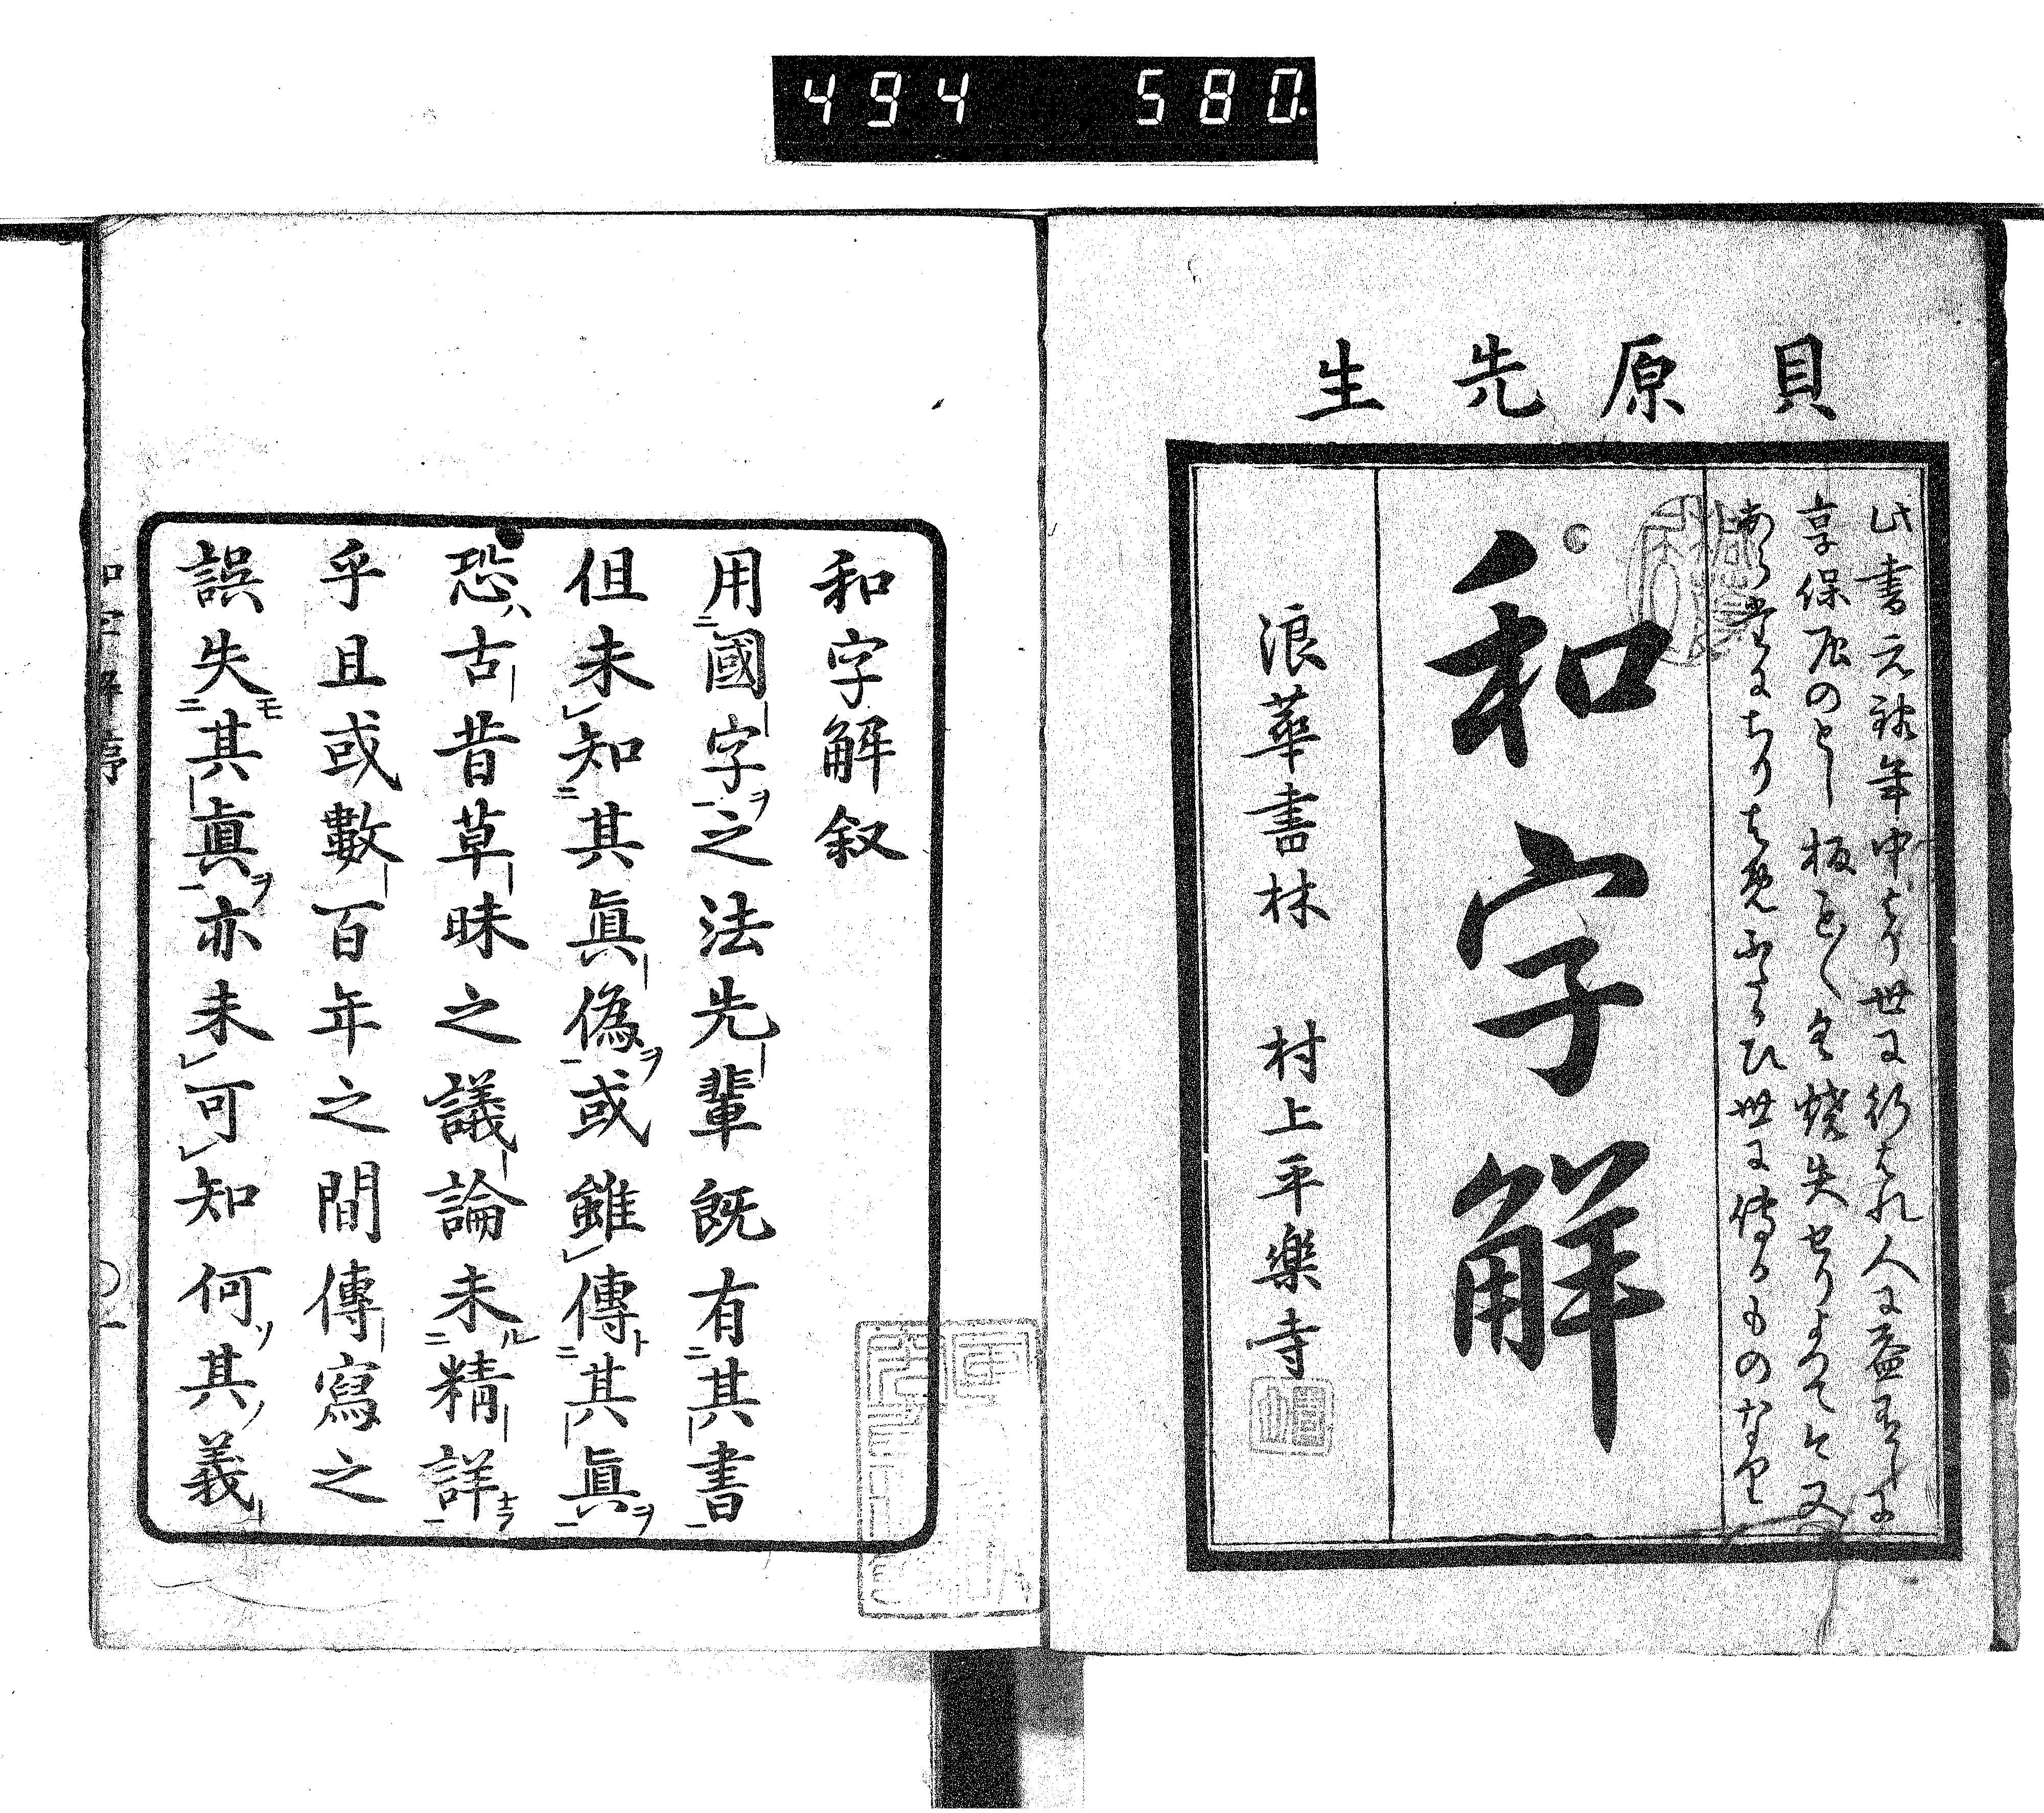 494 580.
貝原先生
此書元禄年中より世に行はれ人に益有しに
享保辰のとし板こと〴〵く焼失せりよつて今又
あらたにちりはめふたゝひ世に傳るものなり
和字解
浪華書林 村上平樂寺
和字解叙
用國字之法先輩既有其書
但未知其眞偽或雖傳其眞
恐古昔草昧之議論未精詳
乎且或數百年之間傳寫之
誤失其眞亦未可知何其義
和字解序 ○一